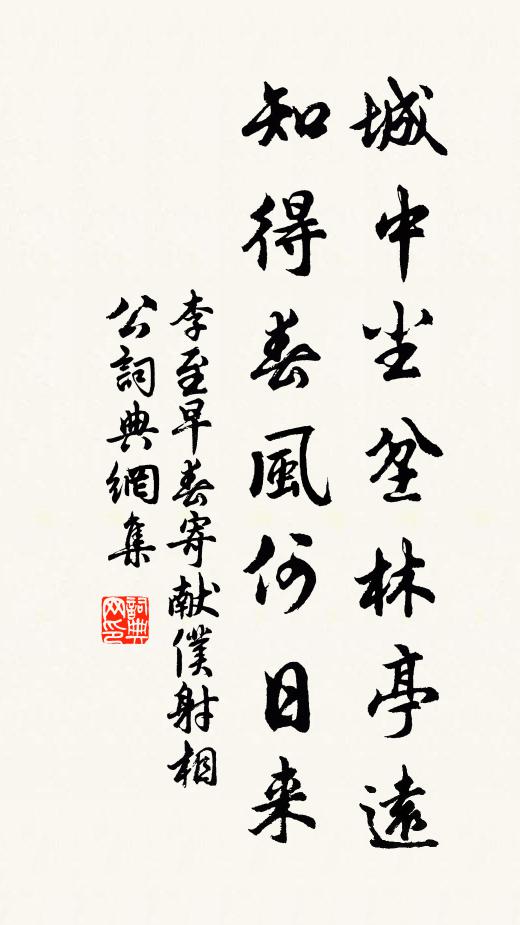 城中尘坌林亭遠
知得春風何日来
李至早春寄献僕射相
公詞典網集
詞典网印